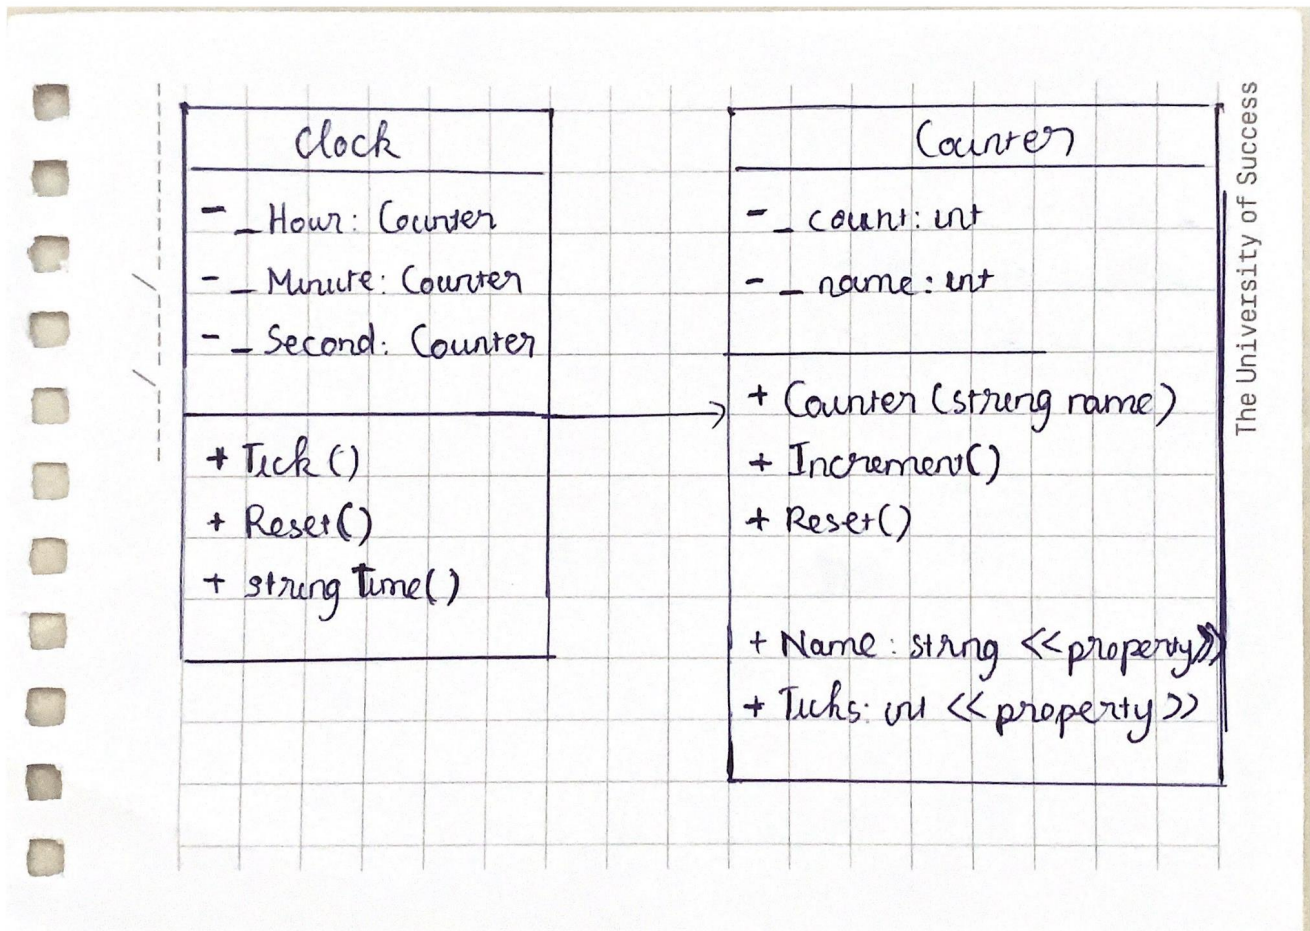 Clock
- _Hour: Counter
- _Minute: Counter
- _Second: Counter
+ Tick()
+ Reset()
+ string Time()
Counter
- _count: int
- _name: int
+ Counter (string name)
+ Increment()
+ Reset()
+ Name: strng <<property>>
+ Ticks: int <<property>>
The University of Success